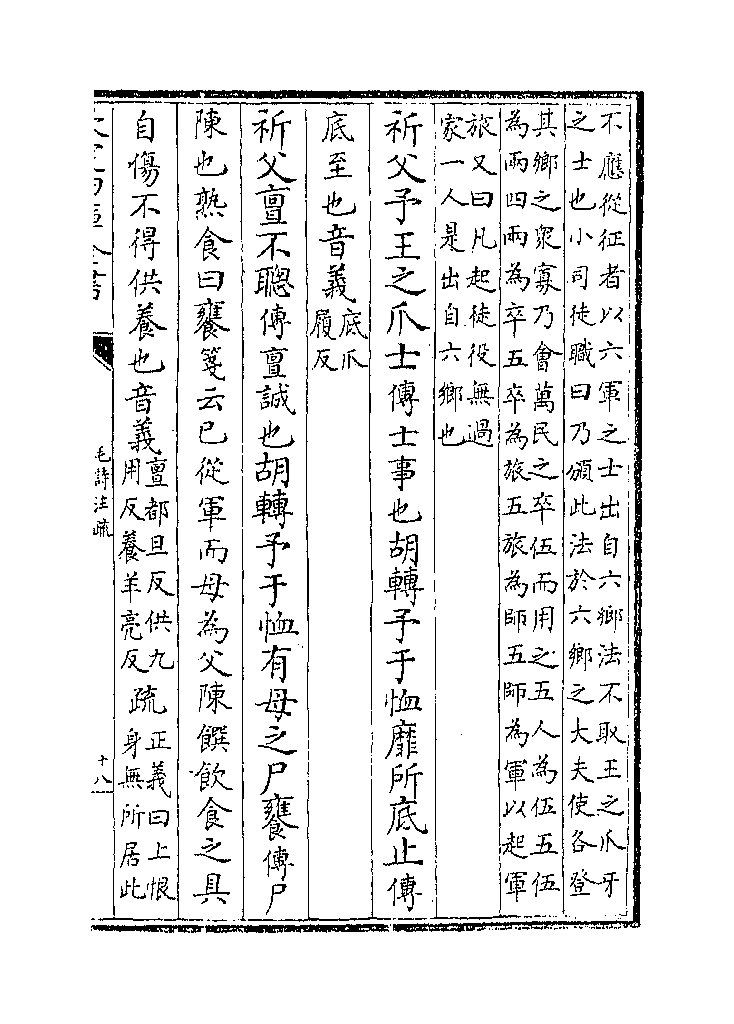 不應從征者以六軍之士出自六鄉法不取王之爪牙
之士也小司徒職曰乃頒此法於六鄉之大夫使各登
其鄉之衆寡乃會萬民之卒伍而用之五人為伍五伍
為兩四兩為卒五卒為旅五旅為師五師為軍以起軍
旅又曰凡起徒役無過
家一人是出自六鄉也
祈父予王之爪士傳士事也胡轉予于恤靡所底止傳
底至也音義底爪
履反
祈父亶不聰傳亶誠也胡轉予于恤有母之尸饔傳尸
陳也熟食曰饔箋云已從軍而母為父陳饌飲食之具
自傷不得供養也音義亶都旦反供九
用反養羊亮反疏正義曰上恨
身無所居此
毛詩注疏
十八